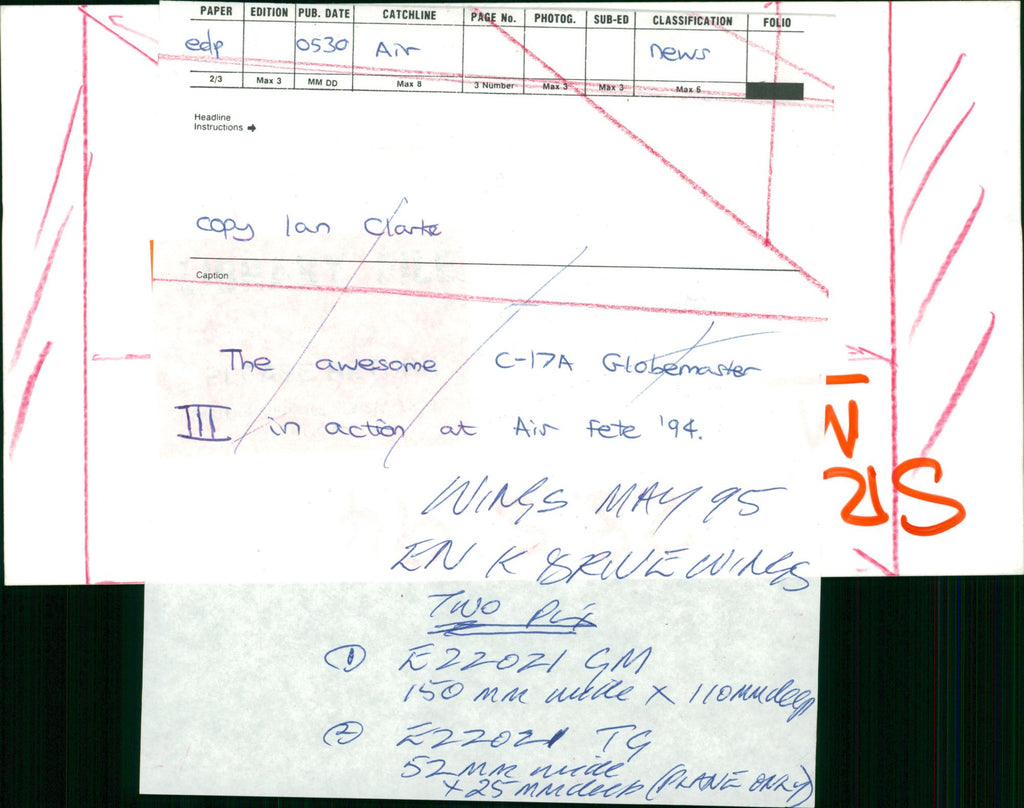 PAPER EDITION PUB. DATE CATCHLINE PAGE No. PHOTOG. SUB-ED CLASSIFICATION FOLIO
edp 0530 Air news
2/3 Max 3 MM DD Max 8 3 Number Max 3 Max 3 Max 6
Headline
Instructions
copy Ian Clarke
Caption
The awesome C-17A Globemaster
III in action at Air Fete '94.
N
21S
WINGS MAY 95
EN K WINGS
TWO PIX
1 E22021 GM
150 mm wide x 110mm deep
2 E22021 TG
52mm wide
x 25mm deep (PLANE ONLY)